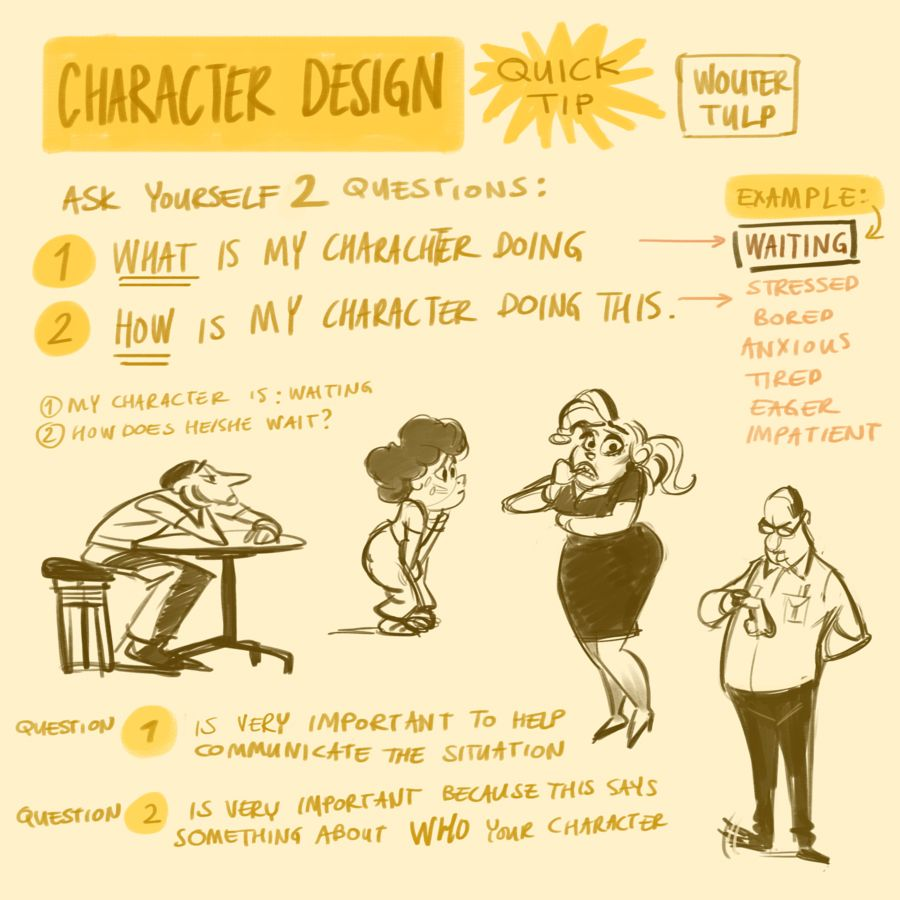 CHARACTER DESIGN
QUICK
TIP
WOUTER
TULP
ASK YOURSELF 2 QUESTIONS:
1 WHAT IS MY CHARACHTER DOING
2 HOW IS MY CHARACTER DOING THIS.
EXAMPLE:
WAITING
STRESSED
BORED
ANXIOUS
TIRED
EAGER
IMPATIENT
1 MY CHARACTER IS: WAITING
2 HOW DOES HE/SHE WAIT?
QUESTION 1 IS VERY IMPORTANT TO HELP
COMMUNICATE THE SITUATION
QUESTION 2 IS VERY IMPORTANT BECAUSE THIS SAYS
SOMETHING ABOUT WHO YOUR CHARACTER